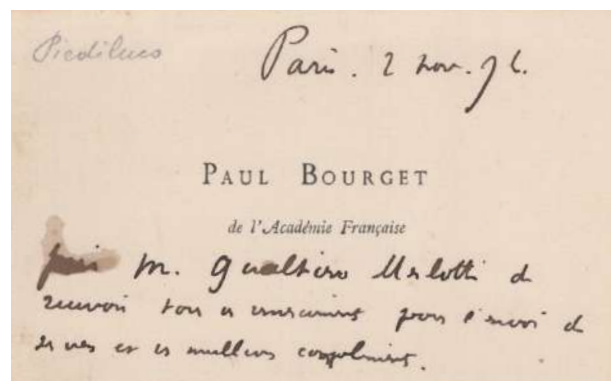 Piediluco
Paris. 2 nov. 96.
PAUL BOURGET
de l'Académie Française
prie M. Gualtiero de
recevoir tous ses pour l'envoi de
ses vers et ses meilleurs compliments.